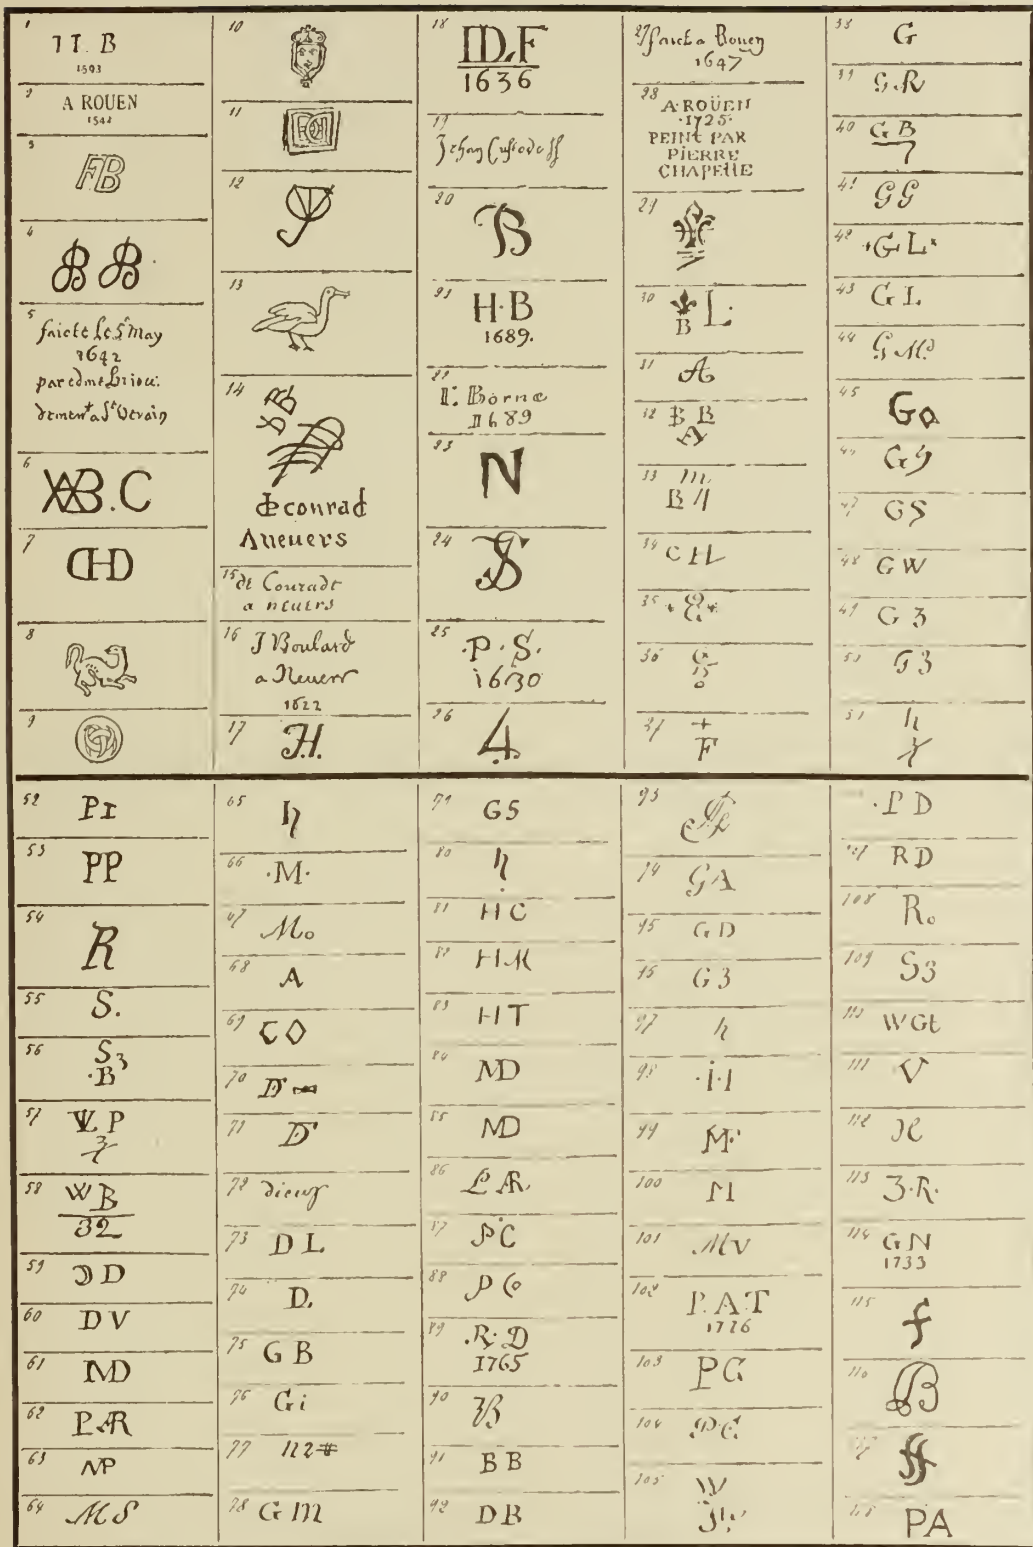 1
1593
2
A ROUEN
1542
3
FB
4
B B
5
faicte le 5 May
1642
par edme Briou
demen.t a S.t Verain
6
WB.C
7
CHD
8
9
10
11
12
13
14
de conrad
Aneuers
15
de Conradt
a neuers
16
J Boulard
a Neuers
1622
17
H.
18
ID.F
1636
19
Jehan Custode ff
20
B
21
H.B
1689.
22
Borne
1689
23
N
24
JS
25
.P.S.
1630
26
4
27
faict a Rouen
1647
28
A·ROÜEN
·1725·
PEINt PAR
PIERRE
CHAPELLE
29
30
B L.
31
A
32
B B
A
33
m.
B
34
CH
35
36
G
15
o
37
+
F
38
G
39
G.R
40
G B
7
41
GG
42
·GL·
43
GL
44
G M.
45
Go
46
G
47
GS
48
GW
49
G 3
50
G3
51
h
52
PI
53
PP
54
R
55
S.
56
S3
·B
57
P
58
WB
32
59
D
60
DV
61
MD
62
PAR
63
NP
64
MS
65
h
66
·M·
67
Mo
68
A
69
CO
70
71
D
72
dieux
73
D L
74
D.
75
G B
76
Gi
77
n2#
78
G m
79
GS
80
h
81
HC
82
HM
83
HT
84
MD
85
MD
86
L AR.
87
PC
88
P Co
89
.R·D
1765
90
B
91
BB
92
DB
93
94
GA
95
GD
96
G3
97
h
98
·i·I
99
M·
100
M
101
MV
102
P.A.T
1726
103
PG
104
P·C.
105
W
106
·PD
107
RD
108
Ro
109
S3
110
WGt
111
V
112
113
3·R·
114
GN
1733
115
f
116
B
117
118
PA